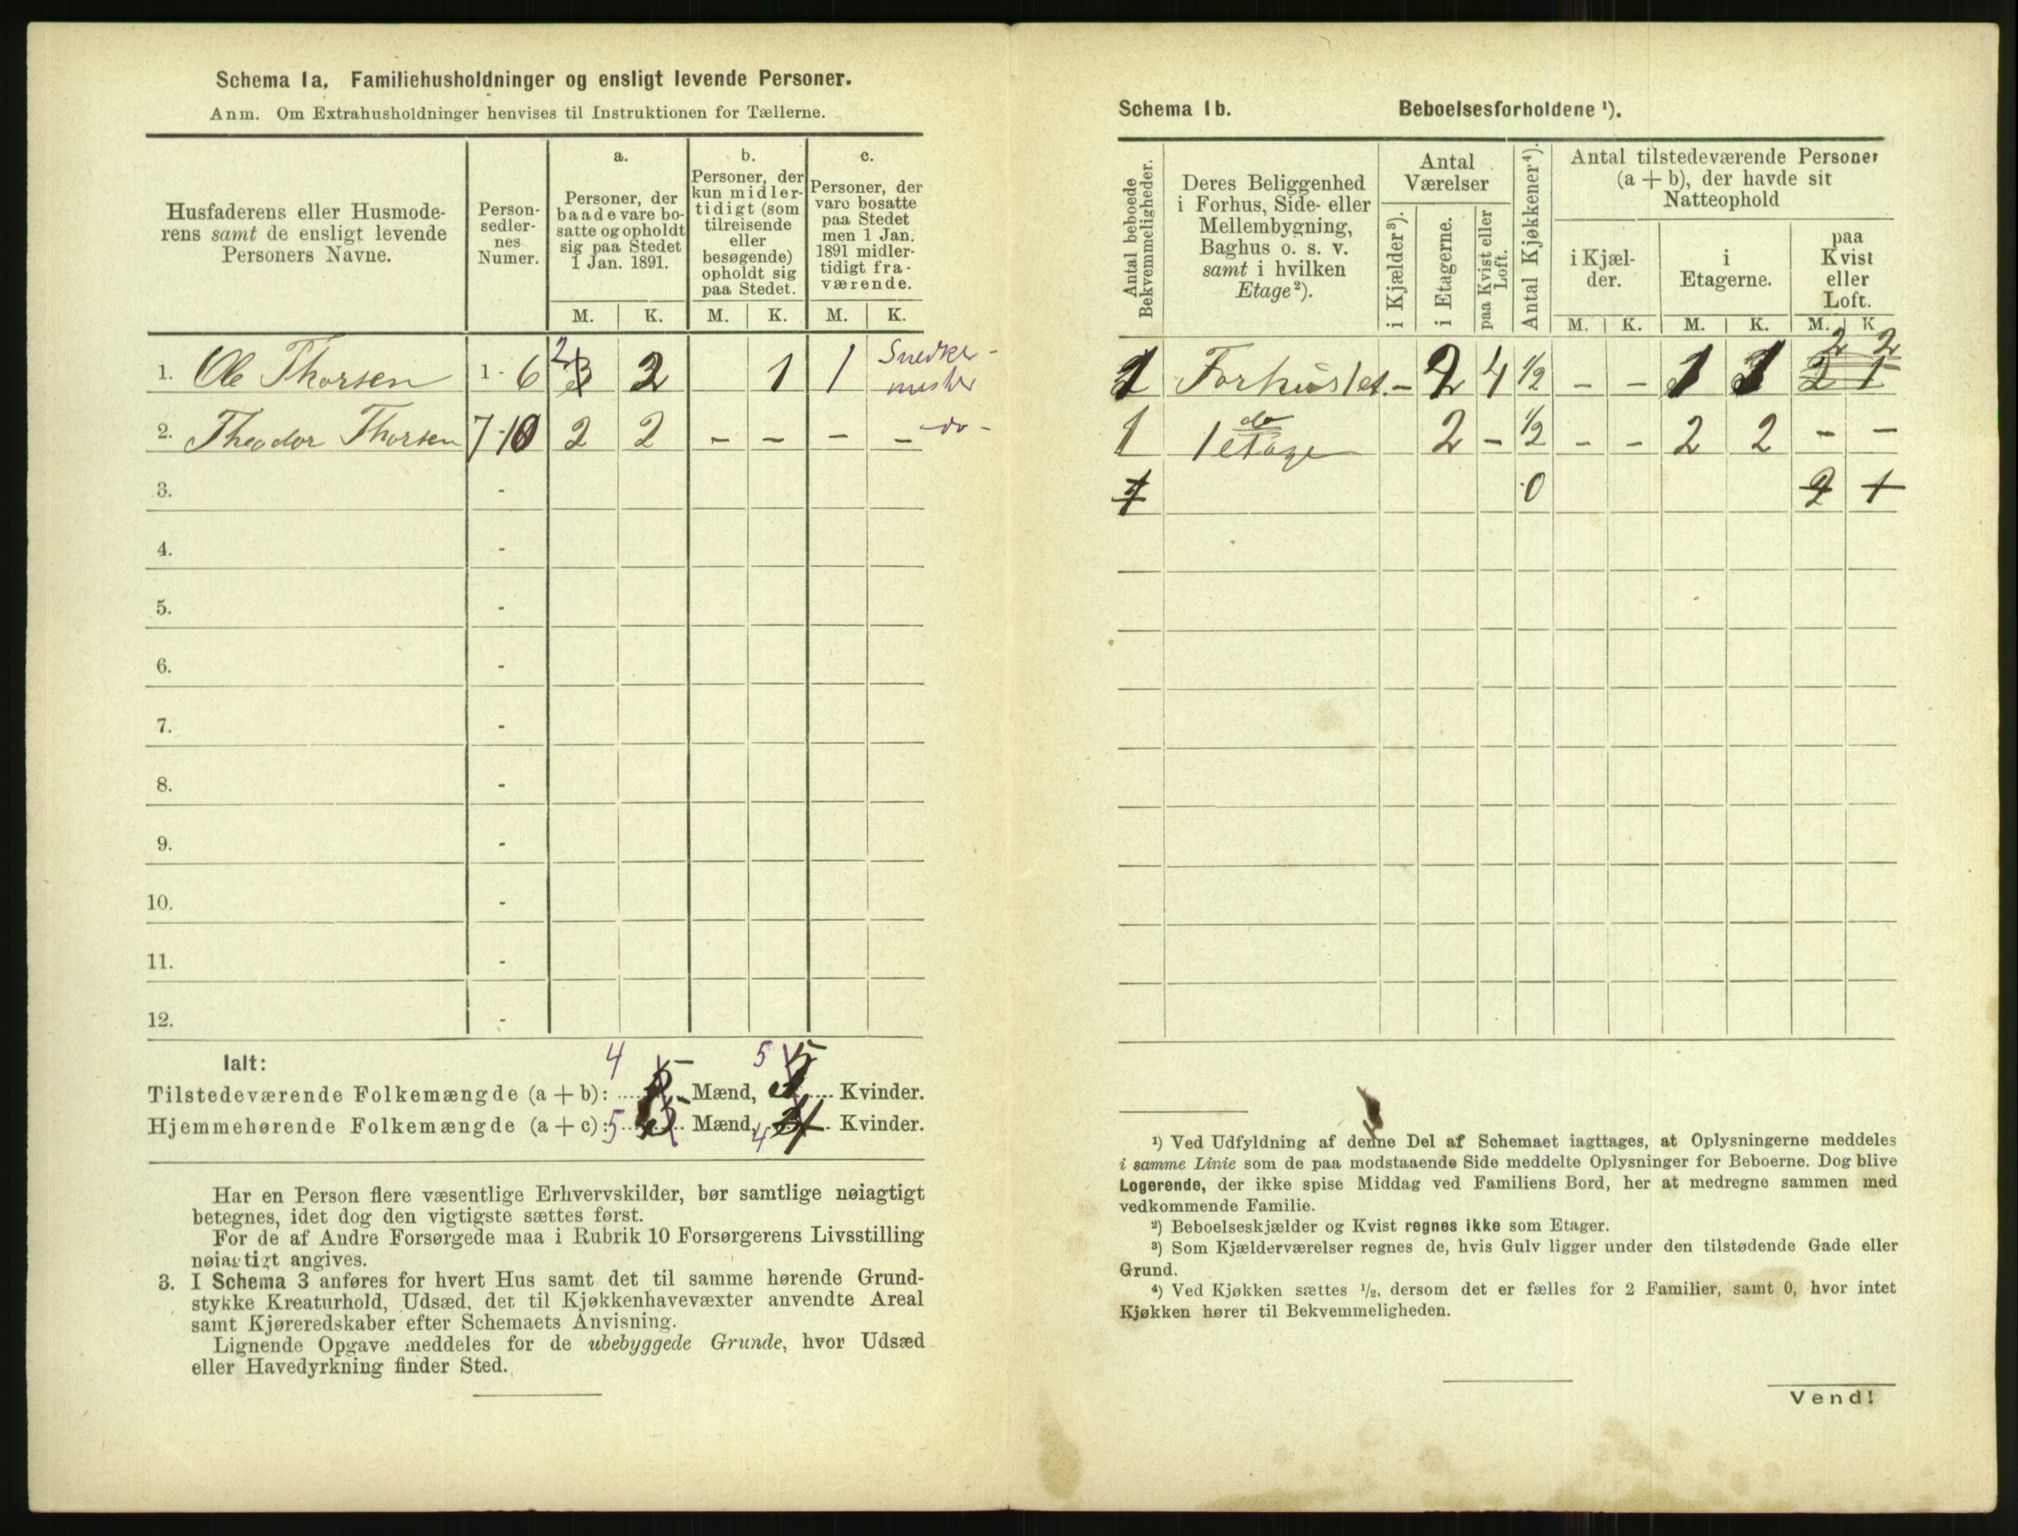 Schema 1a. Familiehusholdninger og ensligt levende Personer.
Anm. Om Extrahusholdninger henvises til Instruktionen for Tællerne.
Husfaderens eller Husmode-
rens samt de ensligt levende
Personers Navne.
Person-
sedler-
nes
Numer.
a.
Personer, der
baade vare bo-
satte og opholdt
sig paa Stedet
1 Jan. 1891.
b.
Personer, der
kun midler-
tidigt (som
tilreisende
eller
besøgende)
opholdt sig
paa Stedet.
c.
Personer, der
vare bosatte
paa Stedet
men 1 Jan.
1891 midler-
tidigt fra-
værende.
M. K. M. K. M. K.
1. Ole Thorsen 1 - 6 2 3 2 1 1 Snedker-
mester
2. Theodor Thorsen 7-10 2 2 - - - - do -
3. -
4. -
5. -
6. -
7. -
8. -
9. -
10. -
11. -
12. -
Ialt:
4 5 5 5
Tilstedeværende Folkemængde (a + b): Mænd, Kvinder.
Hjemmehørende Folkemængde (a + c): 5 Mænd, 4 Kvinder.
Har en Person flere væsentlige Erhvervskilder, bør samtlige nøiagtigt
betegnes, idet dog den vigtigste sættes først.
For de af Andre Forsørgede maa i Rubrik 10 Forsørgerens Livsstilling
nøiagtigt angives.
3. I Schema 3 anføres for hvert Hus samt det til samme hørende Grund-
stykke Kreaturhold, Udsæd, det til Kjøkkenhavevæxter anvendte Areal
samt Kjøreredskaber efter Schemaets Anvisning.
Lignende Opgave meddeles for de ubebyggede Grunde, hvor Udsæd
eller Havedyrkning finder Sted.
Schema 1b. Beboelsesforholdene ¹).
Antal beboede
Bekvemmeligheder.
Deres Beliggenhed
i Forhus, Side- eller
Mellembygning,
Baghus o. s. v.
samt i hvilken
Etage²).
Antal
Værelser
i Kjælder³).
i Etagerne.
paa Kvist eller
Loft.
Antal Kjøkkener⁴).
Antal tilstedeværende Personer
(a + b), der havde sit
Natteophold
i Kjæl-
der.
i
Etagerne.
paa
Kvist
eller
Loft.
M. K. M. K. M. K
2 2
1 Forhuset - 2 4 ½ - - 1 1 2 1
1 do
1 etage 2 - ½ - - 2 2 - -
1 0 2 1
¹) Ved Udfyldning af denne Del af Schemaet iagttages, at Oplysningerne meddeles
i samme Linie som de paa modstaaende Side meddelte Oplysninger for Beboerne. Dog blive
Logerende, der ikke spise Middag ved Familiens Bord, her at medregne sammen med
vedkommende Familie.
²) Beboelseskjælder og Kvist regnes ikke som Etager.
³) Som Kjælderværelser regnes de, hvis Gulv ligger under den tilstødende Gade eller
Grund.
⁴) Ved Kjøkken sættes ½, dersom det er fælles for 2 Familier, samt 0, hvor intet
Kjøkken hører til Bekvemmeligheden.
Vend!